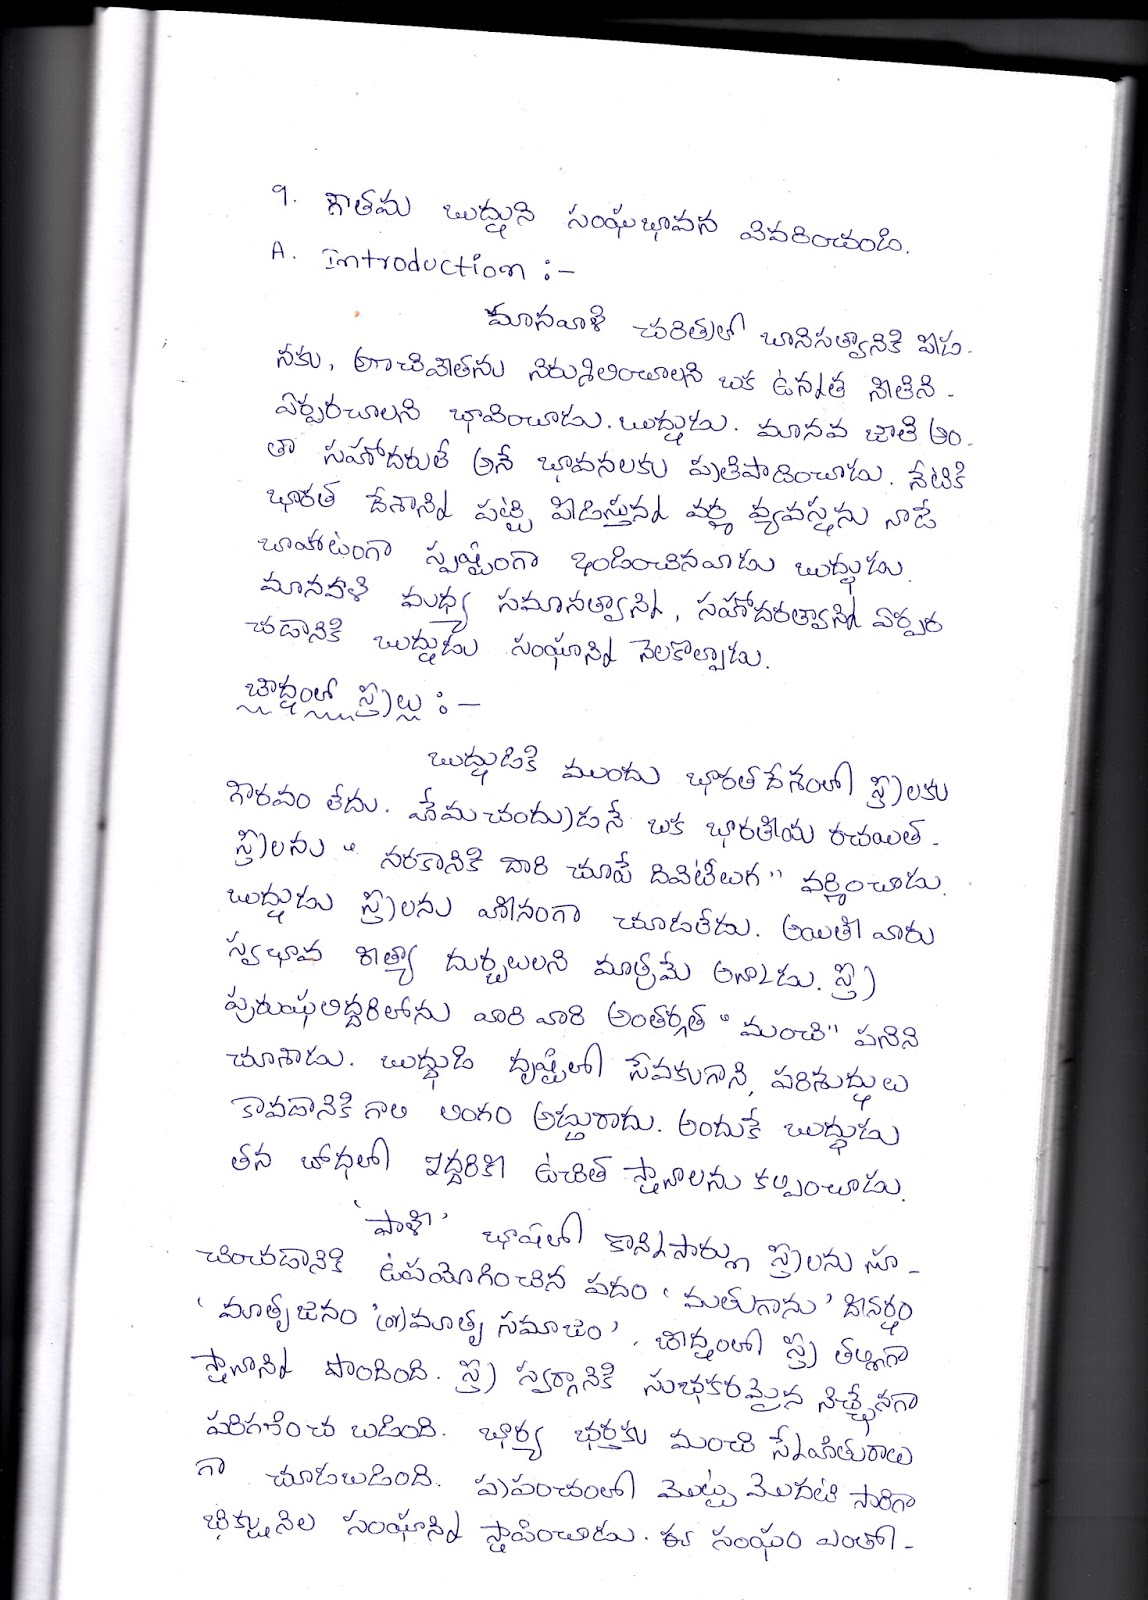 9. గౌతమ బుద్ధుని సంఘభావన వివరించండి.
A. Introduction :-
మానవాళి చరిత్రలో బానిసత్వానికి పీడ-
నకు, అణచివేతను నిర్మూలించాలని ఒక ఉన్నత నీతిని
ఏర్పరచాలని భావించాడు. బుద్ధుడు. మానవ జాతి అం-
తా సహోదరులే అనే భావనలకు ప్రతిపాదించాడు. నేటికి
భారత దేశాన్ని పట్టి పీడిస్తున్న వర్ణ వ్యవస్థను నాడే
బాహాటంగా స్పష్టంగా ఖండించినవాడు బుద్ధుడు.
మానవాళి మధ్య సమానత్వాన్ని, సహోదరత్వాన్ని ఏర్పర
చడానికి బుద్ధుడు సంఘాన్ని నెలకొల్పాడు.
బౌద్ధంలో స్త్రీలు :-
బుద్ధుడికి ముందు భారతదేశంలో స్త్రీలకు
గౌరవం లేదు. హేమచంద్రుడనే ఒక భారతీయ రచయిత
స్త్రీలను " నరకానికి దారి చూపే దివిటీలుగ" వర్ణించాడు.
బుద్ధుడు స్త్రీలను హీనంగా చూడలేదు. అయితే వారు
స్వభావ రీత్యా దుర్బలులని మాత్రమే అన్నాడు. స్త్రీ
పురుషులిద్దరిలోను వారి వారి అంతర్గత "మంచి" పనిని
చూశాడు. బుద్ధుడి దృష్టిలో సేవకుగాని, పరిశుద్ధులు
కావడానికి గాని లింగం అడ్డురాదు. అందుకే బుద్ధుడు
తన బోధలో ఇద్దరికి ఉచిత స్థానాలను కల్పించాడు.
'పాళీ' భాషలో కొన్నిసార్లు స్త్రీలను సూ-
చించడానికి ఉపయోగించిన పదం 'మతుగాను' దీనర్థం
'మాతృజనం '(or) మాతృ సమాజం'. బౌద్ధంలో స్త్రీ తల్లిగా
స్థానాన్ని పొందింది. స్త్రీ స్వర్గానికి సుఖకరమైన నిచ్చేనగా
పరిగణించ బడింది. భార్య భర్తకు మంచి స్నేహితురాలు
గా చూడబడింది. ప్రపంచంలో మొట్ట మొదటి సారిగా
భిక్షునీల సంఘాన్ని స్థాపించాడు. ఈ సంఘం ఎంతో-